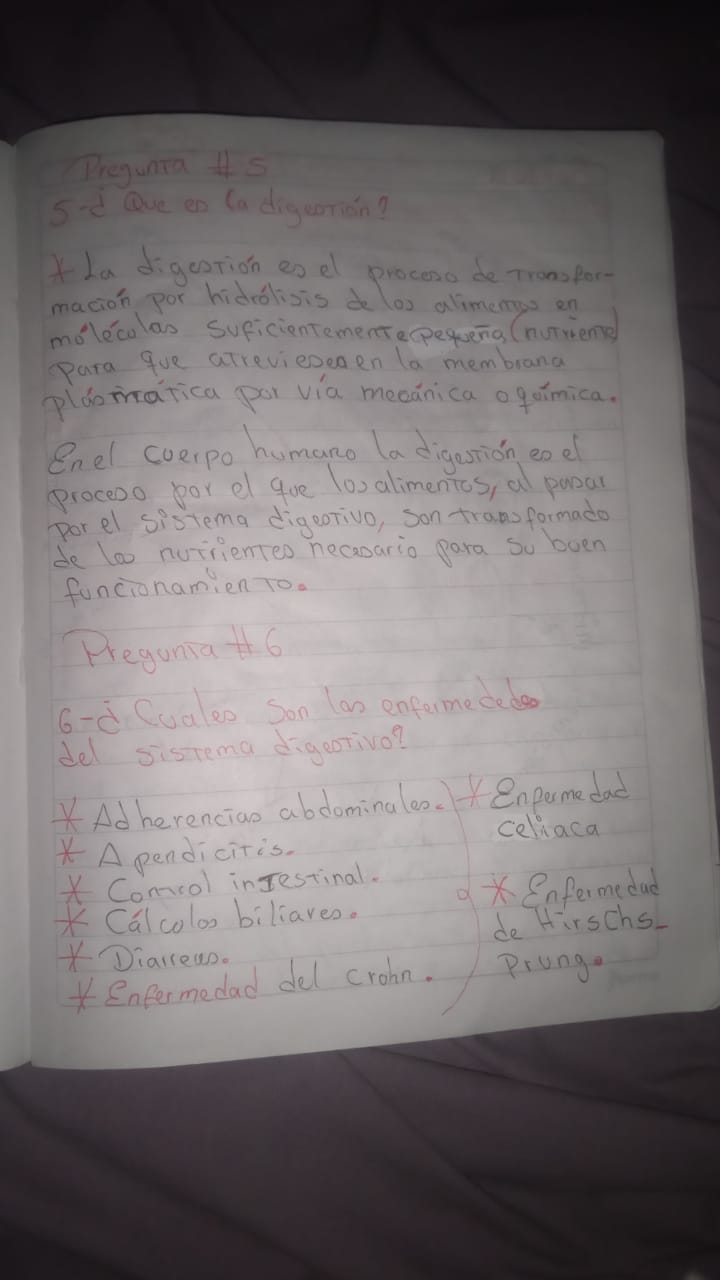 Pregunta # 5
5-¿ Que es la digestión?
* La digestión es el proceso de transfor-
mación por hidrólisis de los alimentos en
molécolas suficientemente pequeña (nutriente)
para que atreviesen en la membrana
plásmática por vía mecánica o química.
En el cuerpo humano la digestión es el
proceso por el que los alimentos, al pasar
por el sistema digestivo, son transformado
de los nutrientes necesario para su buen
funcionamiento.
Pregunta # 6
6-¿ Cuales son las enfermededes
del sistema digestivo?
* Adherencias abdominales.
* Apendicitis.
* Control intestinal.
* Cálcolos biliares.
* Diarreas.
* Enfermedad del crohn.
* Enfermedad
celiaca
* Enfermedad
de Hirschs-
prung.